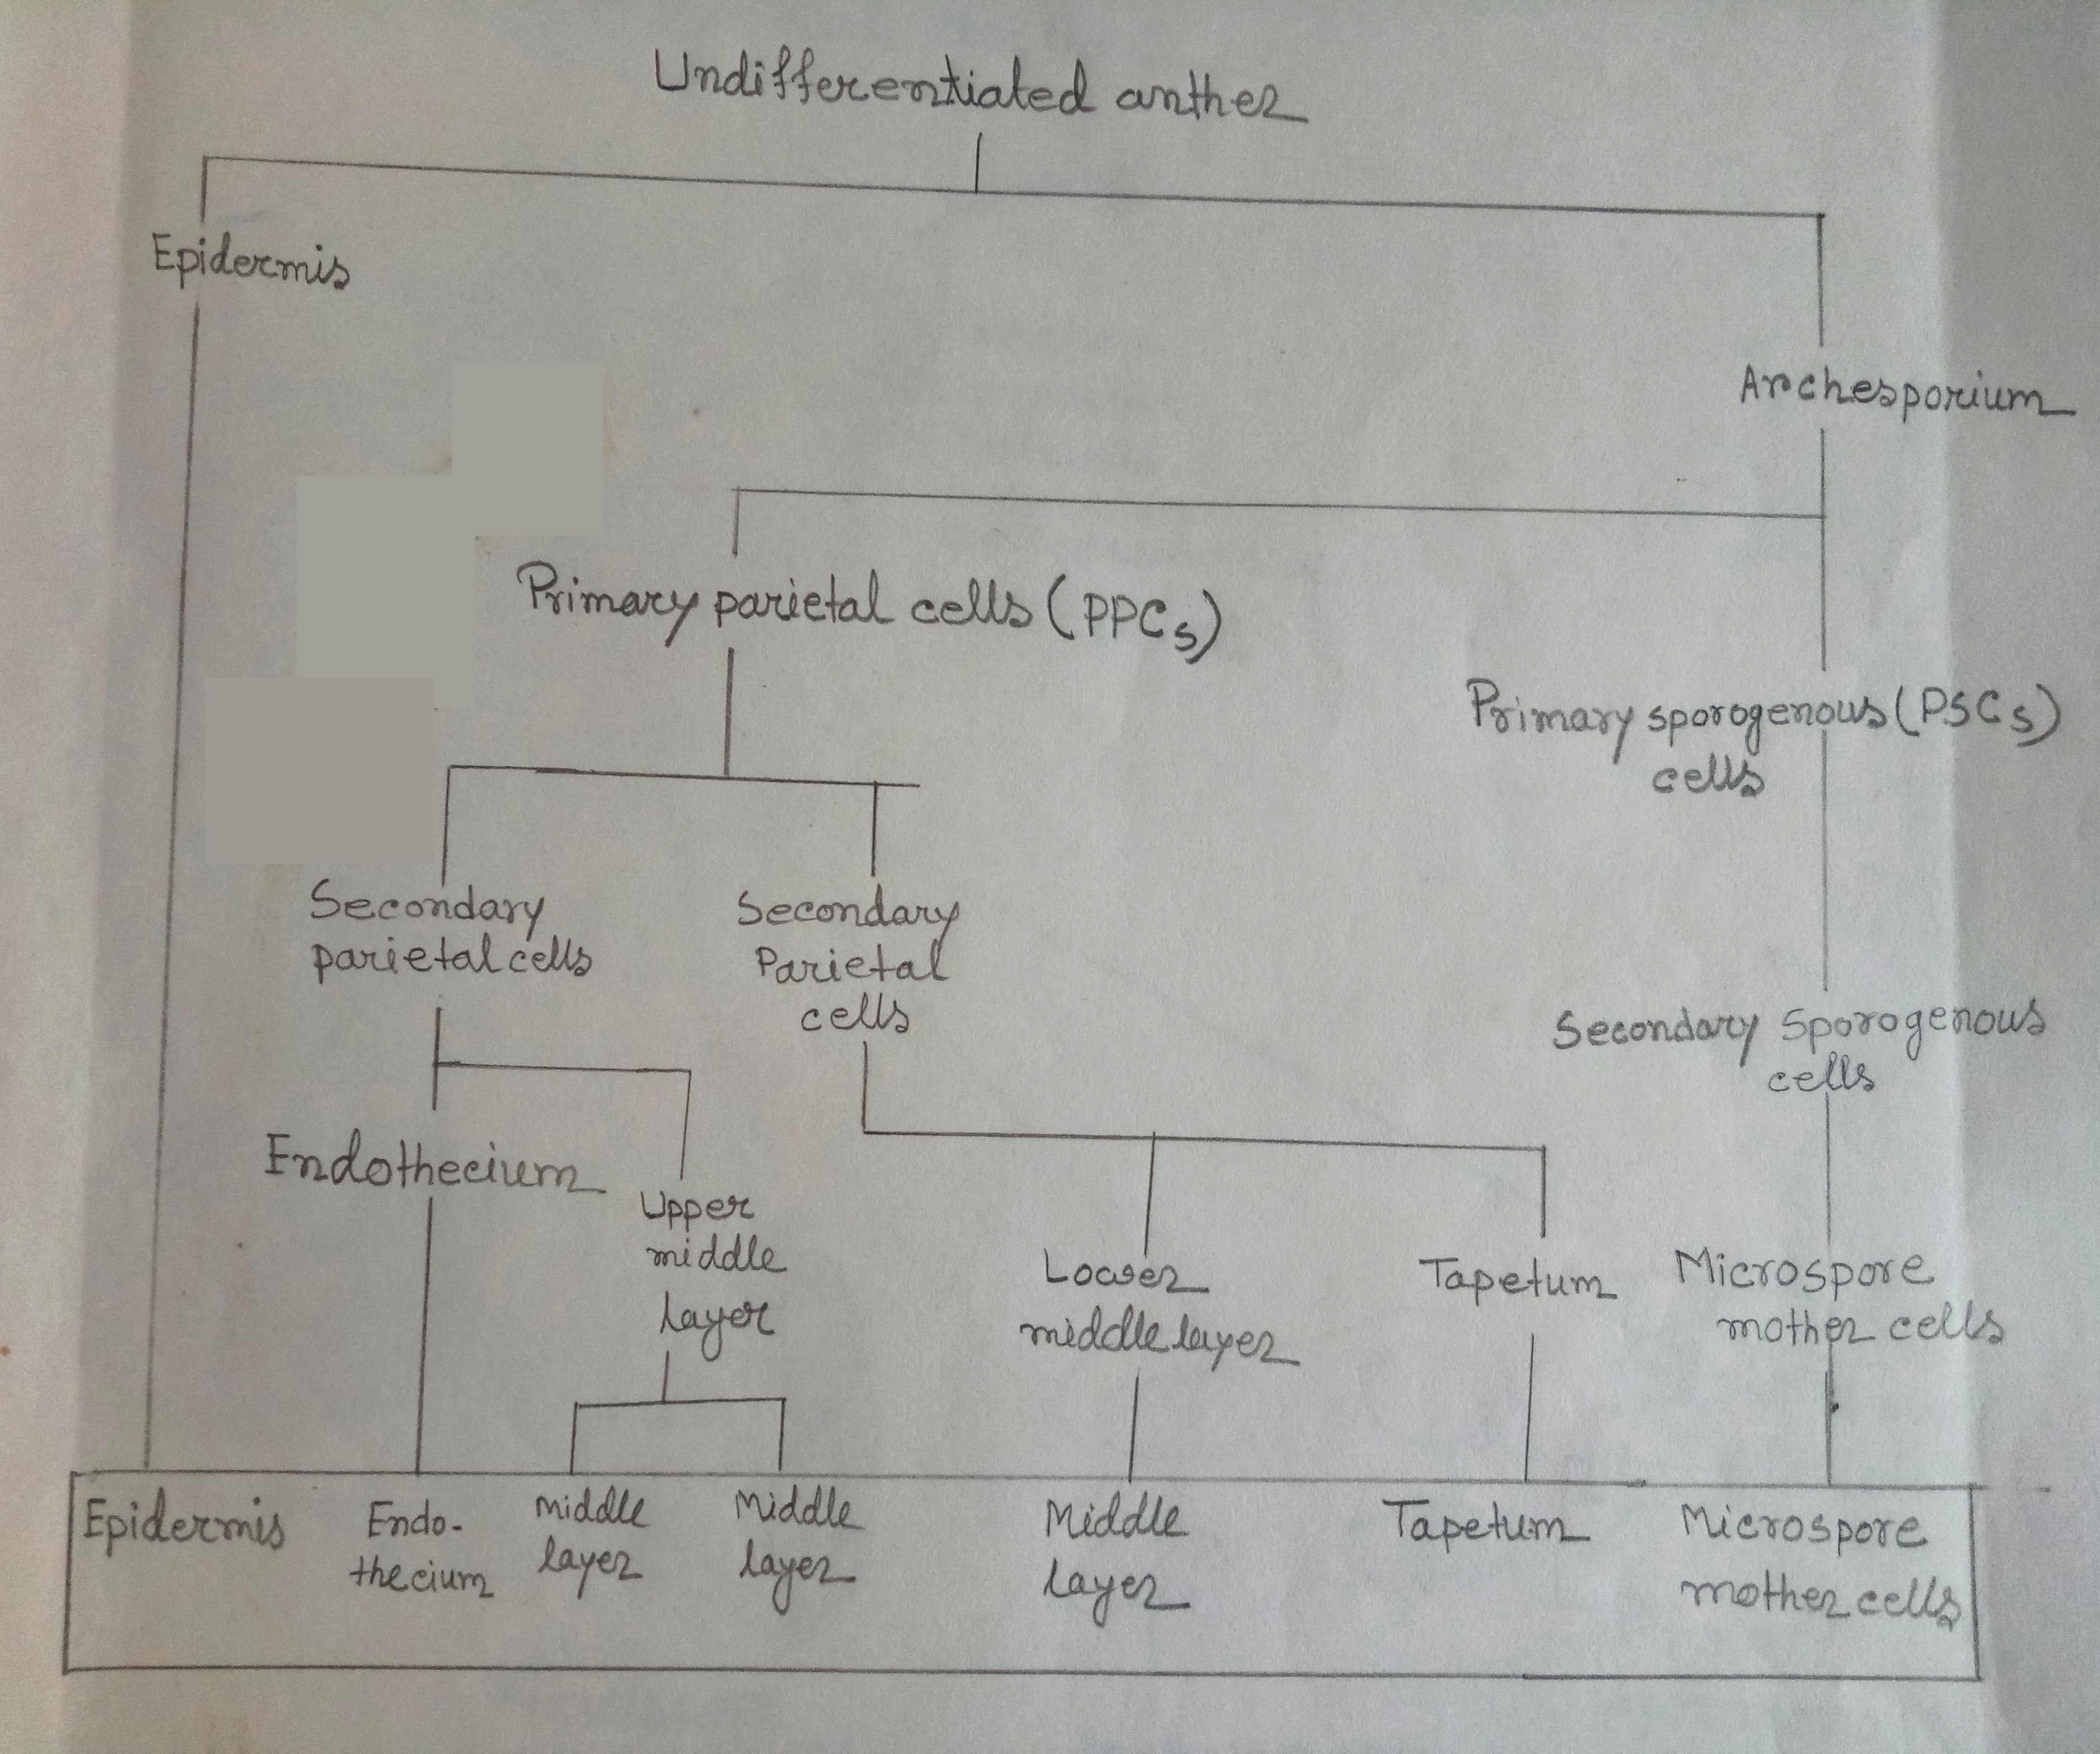 Undifferentiated anther
Epidermis
Archesporium
Primary parietal cells (PPCs)
Primary sporogenous (PSCs)
cells
Secondary
parietal cells
Secondary
Parietal
cells
Secondary Sporogenous
cells
Endothecium
Upper
middle
layer
Lower
middle layer
Tapetum
Microspore
mother cells
Epidermis
Endo-
thecium
Middle
layer
Middle
layer
Middle
layer
Tapetum
Microspore
mother cells